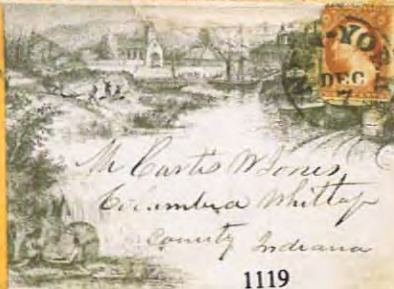 YORK
DEC
7
Mr Curtis W Jones
Columbia Whitley
County Indiana
1119